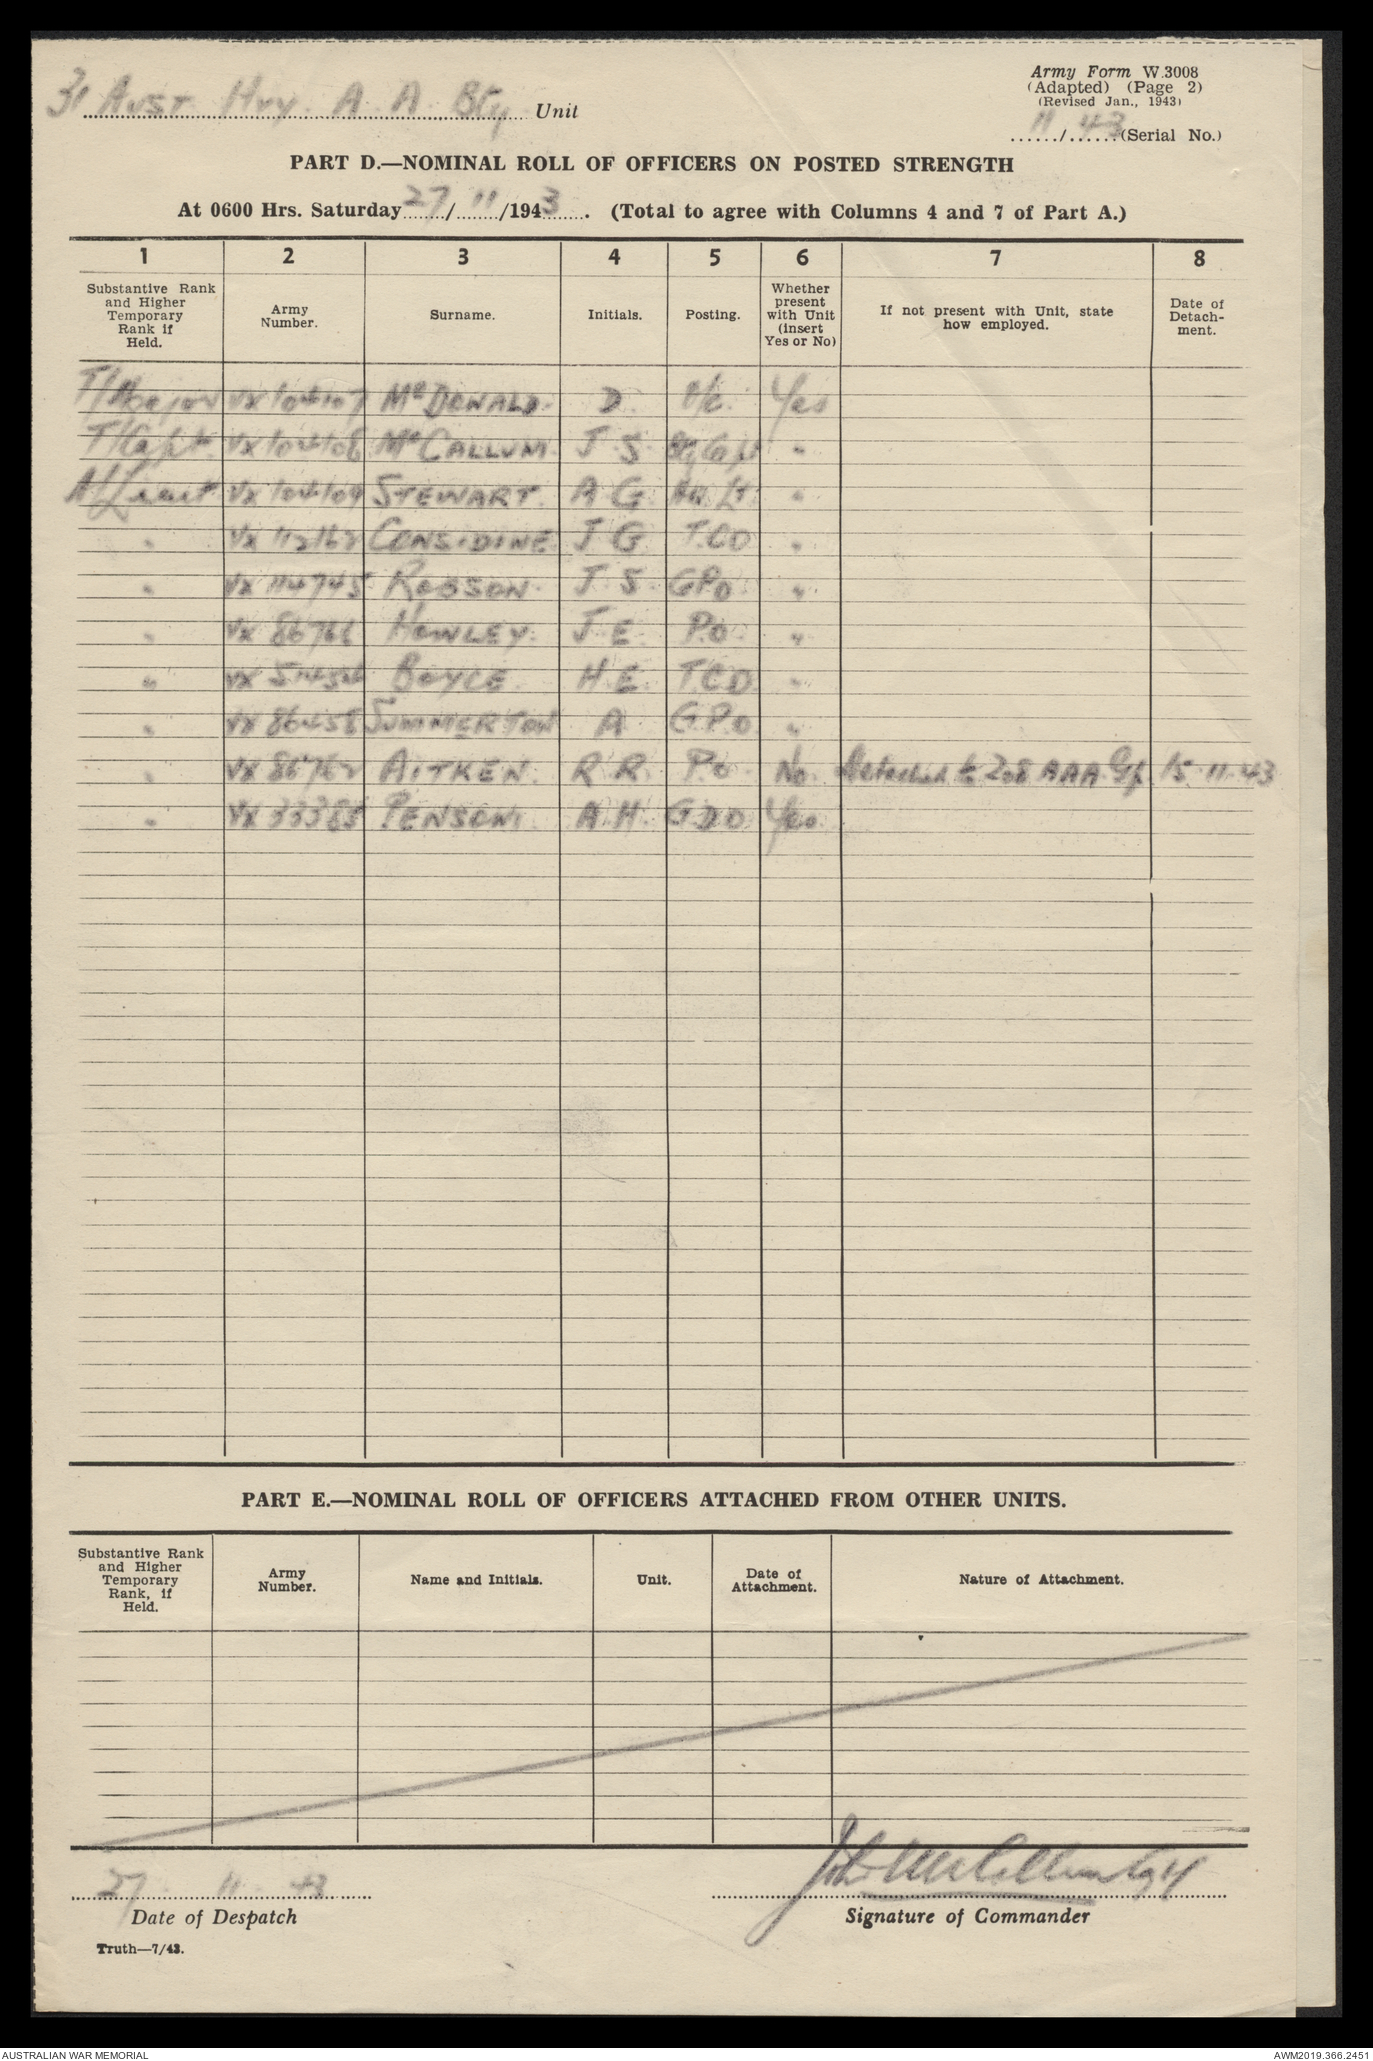 31 Aust Hvy. A A Bty Unit
Army Form W.3008
(Adapted) (Page 2)
(Revised Jan., 1943)
11/43 (Serial No.)
PART D.—NOMINAL ROLL OF OFFICERS ON POSTED STRENGTH
At 0600 Hrs. Saturday 27/11/1943. (Total to agree with Columns 4 and 7 of Part A.)
1 2 3 4 5 6 7 8
Substantive Rank and Higher Temporary Rank if Held. Army Number. Surname. Initials. Posting. Whether present with Unit (insert Yes or No) If not present with Unit, state how employed. Date of Detach-ment.
T/Major VX104107 McDONALD. D. O/C. Yes
T/Capt. VX104108 McCALLUM. J S. Bty Capt "
A/Lieut. VX104109 STEWART. A G. "
" VX112162 CONSIDINE. J G. T.C.O "
" VX114745 ROBSON. J. S. GPO "
" HOWLEY. J. E. P.O. "
" BOYCE. H. E. T.C.O. "
" VX86458 SUMMERTON A. G.P.O. "
" VX86762 AITKEN. R R. P.O. No. Detached to 208 AAA Gp. 15.11.43
" VX33385 PENSON. A H. Yes.
PART E.—NOMINAL ROLL OF OFFICERS ATTACHED FROM OTHER UNITS.
Substantive Rank and Higher Temporary Rank, if Held. Army Number. Name and Initials. Unit. Date of Attachment. Nature of Attachment.
27. 11. 43
John McCallum Capt
Date of Despatch Signature of Commander
Truth—7/43.
AUSTRALIAN WAR MEMORIAL AWM2019.366.2451